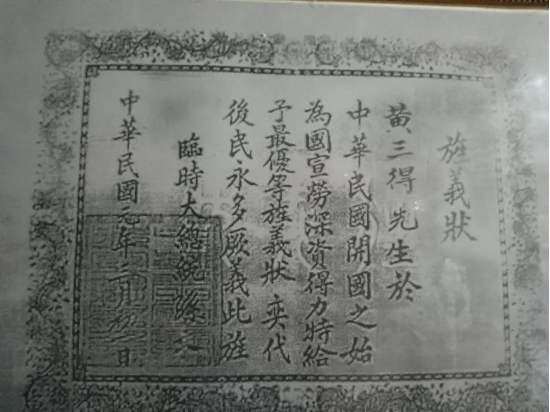 旌義狀
黃三得先生於
中華民國開國之始
為國宣勞深資得力特給
予最優等旌義狀奕代
後民永多厥義此旌
臨時大總統孫文
中華民國元年二月 日